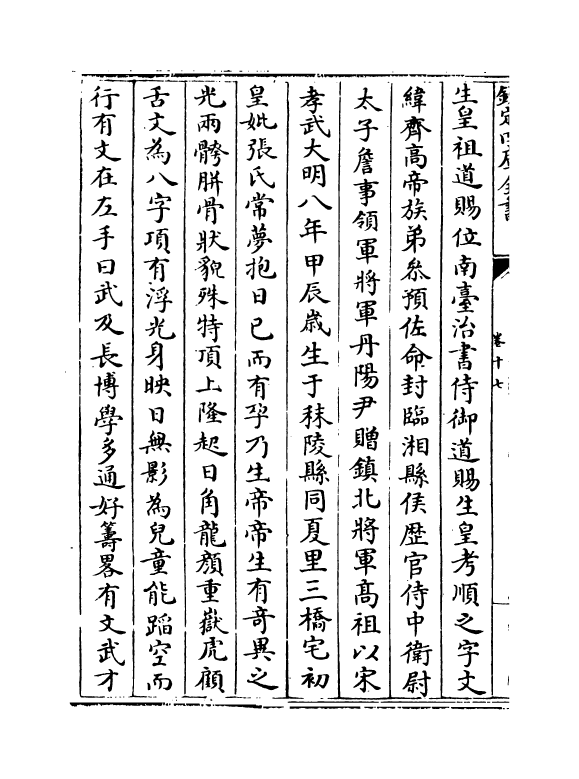 欽定四庫全書
卷十七
生皇祖道賜位南臺治書侍御道賜生皇考順之字文
緯齊高帝族弟叅預佐命封臨湘縣侯歴官侍中衛尉
太子詹事領軍將軍丹陽尹贈鎮北將軍髙祖以宋
孝武大明八年甲辰歳生于秣陵縣同夏里三橋宅初
皇妣張氏常夢抱日已而有孕乃生帝帝生有竒異之
光兩骻骿骨狀貌殊特項上隆起日角龍顔重嶽虎顧
舌文為八字項有浮光身映日無影為兒童能蹈空而
行有文在左手曰武及長博學多通好籌畧有文武才